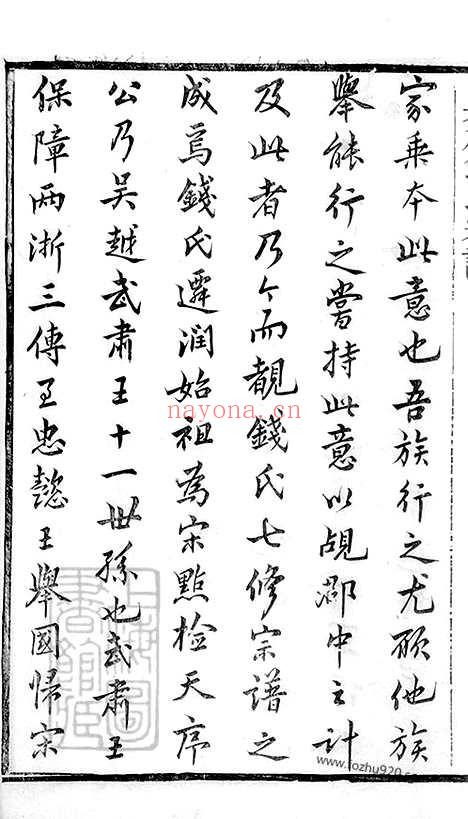 家乘本此意也吾族行之尤願他族
舉能行之嘗持此意以覘鄰中之計
及此者乃今而覩錢氏七修宗譜之
成焉錢氏遷潤始祖為宋點檢天序
公乃吳越武肅王十一世孫也武肅王
保障兩浙三傳至忠懿王舉國歸宋
nayona.cn
上海圖書館藏
www.fozhu920.com